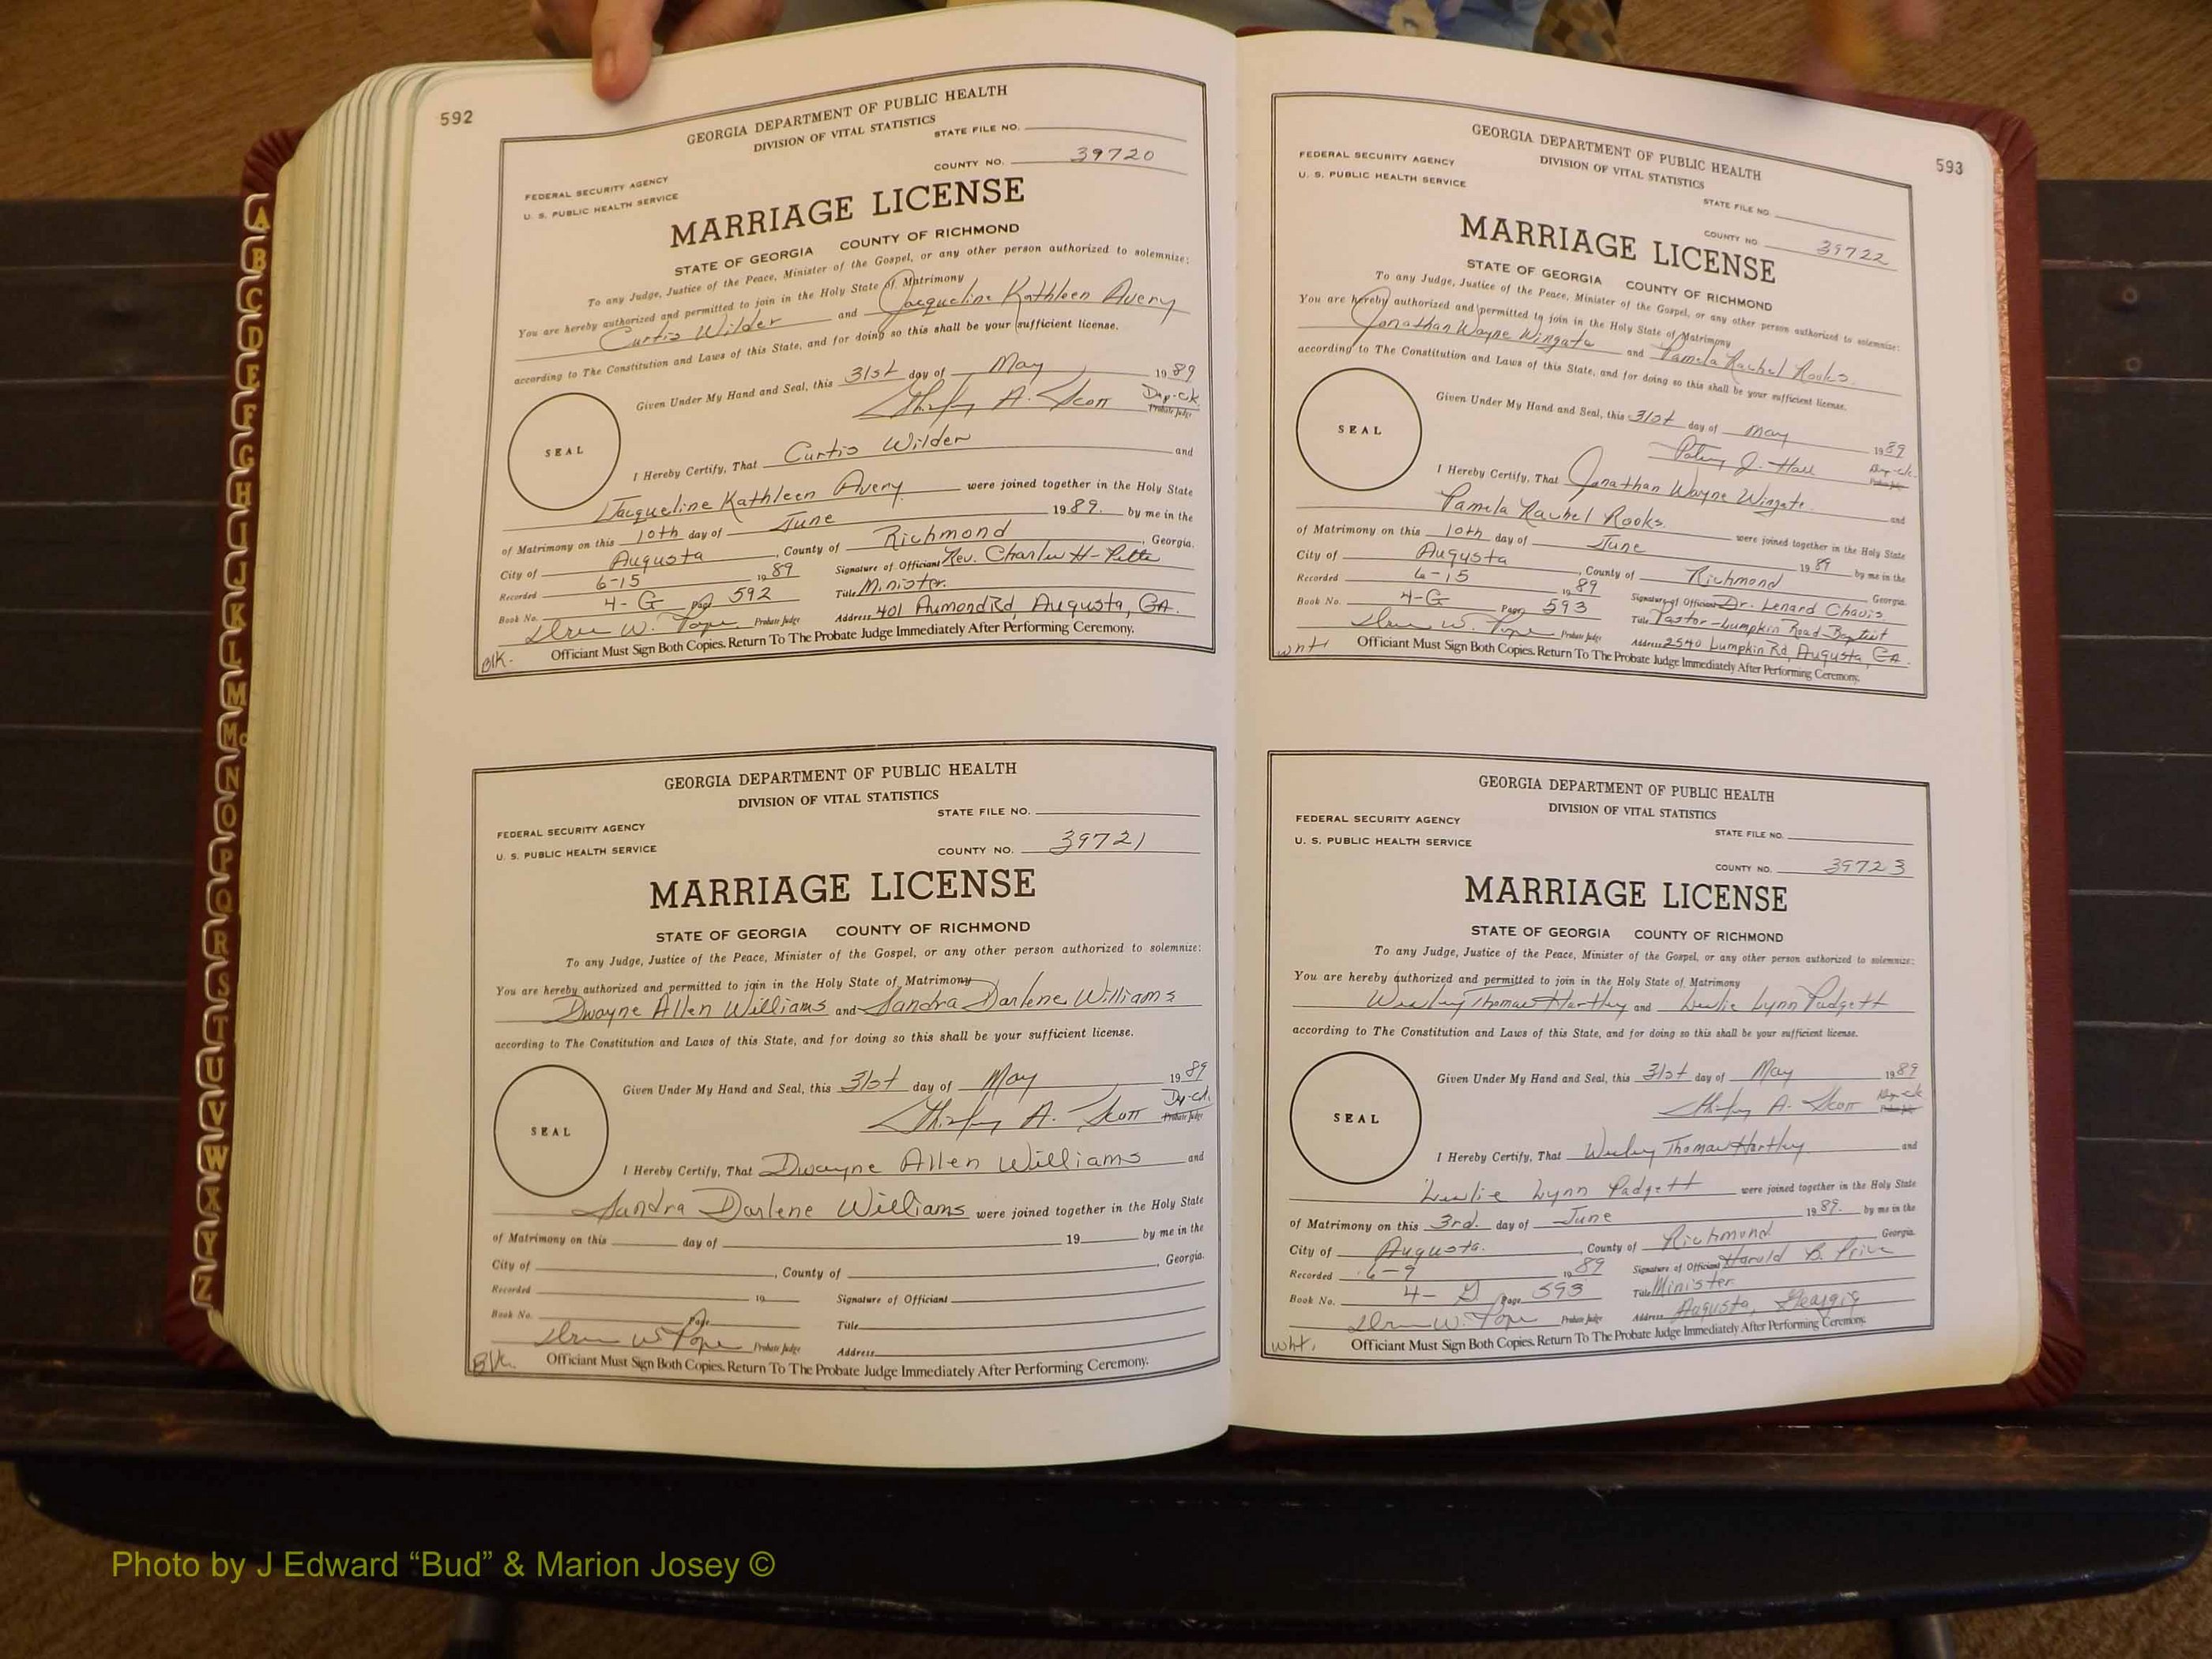 592
GEORGIA DEPARTMENT OF PUBLIC HEALTH
DIVISION OF VITAL STATISTICS
STATE FILE NO.
COUNTY NO. 39720
FEDERAL SECURITY AGENCY
U. S. PUBLIC HEALTH SERVICE
MARRIAGE LICENSE
STATE OF GEORGIA COUNTY OF RICHMOND
To any Judge, Justice of the Peace, Minister of the Gospel, or any other person authorized to solemnize:
You are hereby authorized and permitted to join in the Holy State of Matrimony
Curtis Wilder and Jacqueline Kathleen Avery
according to The Constitution and Laws of this State, and for doing so this shall be your sufficient license.
Given Under My Hand and Seal, this 31st day of May 1989
Shirley A. Scott Dep-Clk.
Probate Judge
SEAL
I Hereby Certify, That Curtis Wilder and
Jacqueline Kathleen Avery were joined together in the Holy State
of Matrimony on this 10th day of June 1989. by me in the
City of Augusta, County of Richmond, Georgia.
Recorded 6-15 1989 Signature of Officiant Rev. Charles H.
Book No. 4-G Page 592 Title Minister.
W. Pope Probate Judge Address 401 Aumond Rd, Augusta, GA.
Blk. Officiant Must Sign Both Copies. Return To The Probate Judge Immediately After Performing Ceremony.
GEORGIA DEPARTMENT OF PUBLIC HEALTH
DIVISION OF VITAL STATISTICS
STATE FILE NO.
FEDERAL SECURITY AGENCY
U. S. PUBLIC HEALTH SERVICE
COUNTY NO. 39721
MARRIAGE LICENSE
STATE OF GEORGIA COUNTY OF RICHMOND
To any Judge, Justice of the Peace, Minister of the Gospel, or any other person authorized to solemnize:
You are hereby authorized and permitted to join in the Holy State of Matrimony
Dwayne Allen Williams and Sandra Darlene Williams
according to The Constitution and Laws of this State, and for doing so this shall be your sufficient license.
Given Under My Hand and Seal, this 31st day of May 1989
Shirley A. Scott Dp-Cl.
Probate Judge
SEAL
I Hereby Certify, That Dwayne Allen Williams and
Sandra Darlene Williams were joined together in the Holy State
of Matrimony on this day of 19 by me in the
City of , County of , Georgia.
Recorded 19 Signature of Officiant
Book No. Page Title
W. Pope Probate Judge Address
Blk. Officiant Must Sign Both Copies. Return To The Probate Judge Immediately After Performing Ceremony.
593
GEORGIA DEPARTMENT OF PUBLIC HEALTH
DIVISION OF VITAL STATISTICS
FEDERAL SECURITY AGENCY
U. S. PUBLIC HEALTH SERVICE
STATE FILE NO.
COUNTY NO. 39722
MARRIAGE LICENSE
STATE OF GEORGIA COUNTY OF RICHMOND
To any Judge, Justice of the Peace, Minister of the Gospel, or any other person authorized to solemnize:
You are hereby authorized and permitted to join in the Holy State of Matrimony
Jonathan Wayne Wingate and Pamela Rachel Rooks.
according to The Constitution and Laws of this State, and for doing so this shall be your sufficient license.
Given Under My Hand and Seal, this 31st day of May 1989
J. Hall Dep-clk.
Probate Judge
SEAL
I Hereby Certify, That Jonathan Wayne Wingate. and
Pamela Rachel Rooks. were joined together in the Holy State
of Matrimony on this 10th day of June 1989 by me in the
City of Augusta, County of Richmond Georgia.
Recorded 6-15 1989 Signature of Officiant Dr. Lenard Chavis
Book No. 4-G Page 593 Title Pastor-Lumpkin Road Baptist
W. Pope Probate Judge Address 2540 Lumpkin Rd, Augusta, GA.
wht Officiant Must Sign Both Copies. Return To The Probate Judge Immediately After Performing Ceremony.
GEORGIA DEPARTMENT OF PUBLIC HEALTH
DIVISION OF VITAL STATISTICS
FEDERAL SECURITY AGENCY
U. S. PUBLIC HEALTH SERVICE
STATE FILE NO.
COUNTY NO. 39723
MARRIAGE LICENSE
STATE OF GEORGIA COUNTY OF RICHMOND
To any Judge, Justice of the Peace, Minister of the Gospel, or any other person authorized to solemnize:
You are hereby authorized and permitted to join in the Holy State of Matrimony
Wesley Thomas Hartley and Leslie Lynn Padgett
according to The Constitution and Laws of this State, and for doing so this shall be your sufficient license.
Given Under My Hand and Seal, this 31st day of May 1989
Shirley A. Scott Dep-clk
Probate Judge
SEAL
I Hereby Certify, That Wesley Thomas Hartley and
Leslie Lynn Padgett were joined together in the Holy State
of Matrimony on this 3rd. day of June 1989. by me in the
City of Augusta. , County of Richmond Georgia.
Recorded 6-9 1989 Signature of Officiant Harold B. Price
Book No. 4-G Page 593 Title Minister.
W. Pope Probate Judge Address Augusta, Georgia
wht. Officiant Must Sign Both Copies. Return To The Probate Judge Immediately After Performing Ceremony.
A
B
C
D
E
F
G
H
I
J
K
L
M
Mc
N
O
P
Q
R
S
T
U
V
W
X
Y
Z
Photo by J Edward “Bud” & Marion Josey ©